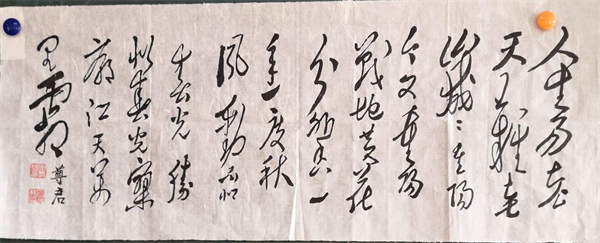 人生易老
天難老
歲〻重陽
今又重陽
戰地黄花
分外香一
年一度秋
風勁不似
春光勝
似春光寥
廓江天万
里霜
尊君